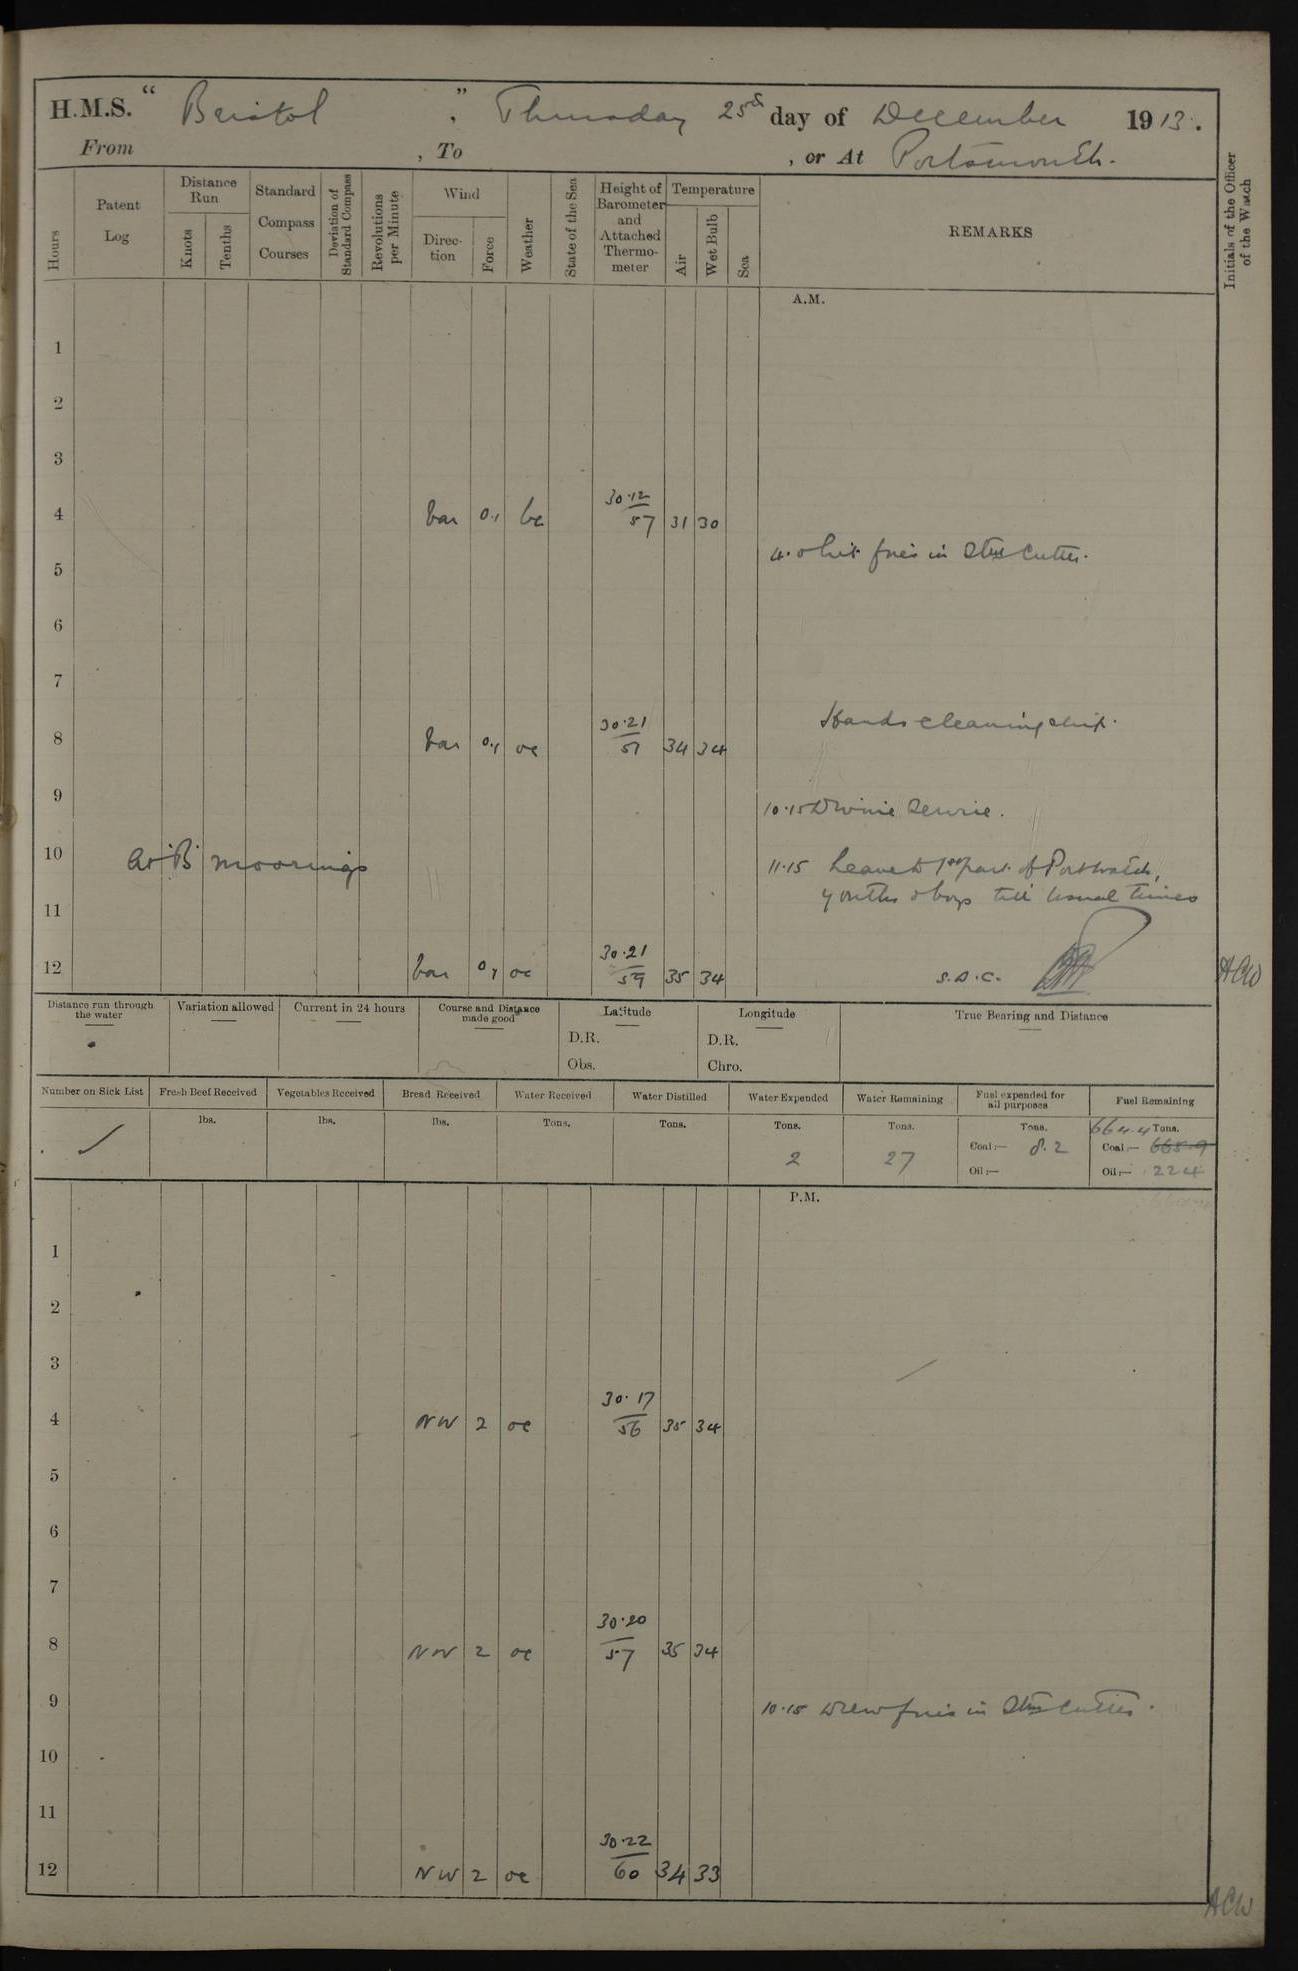 H.M.S. “ Bristol ” , Thursday 25th day of December 1913.
From , To , or At Portsmouth.
Hours
Patent Log
Distance Run
Knots
Tenths
Standard Compass Courses
Deviation of Standard Compass
Revolutions per Minute
Wind
Direction
Force
Weather
State of the Sea
Height of Barometer and Attached Thermometer
Temperature
Air
Wet Bulb
Sea
REMARKS
Initials of the Officer of the Watch
A.M.
1
2
3
4 Var 0.1 bc 30.12 57 31 30
4.0 Lit fires in Stm Cutter.
5
6
7
Hands cleaning ship.
8 Var 0.1 oc 30.21 57 34 34
9
10.15 Divine Service.
10 At 'B' moorings
11.15 Leave to 1st part of Port Watch,
youths & boys till usual times
11
12 Var 0.1 oc 30.21 59 35 34 S.D.C. ACW
Distance run through the water
Variation allowed
Current in 24 hours
Course and Distance made good
Latitude
D.R.
Obs.
Longitude
D.R.
Chro.
True Bearing and Distance
Number on Sick List
Fresh Beef Received
lbs.
Vegetables Received
lbs.
Bread Received
lbs.
Water Received
Tons.
Water Distilled
Tons.
Water Expended
Tons.
2
Water Remaining
Tons.
27
Fuel expended for all purposes
Tons.
Coal:— 8.2
Oil:—
Fuel Remaining
664.4 Tons.
Coal:— 665.9
Oil:— 224
P.M.
1
2
3
4 NW 2 oc 30.17 56 35 34
5
6
7
8 NW 2 oc 30.20 57 35 34
9
10.15 Drew fires in Stm Cutter.
10
11
12 NW 2 oc 30.22 60 34 33
ACW